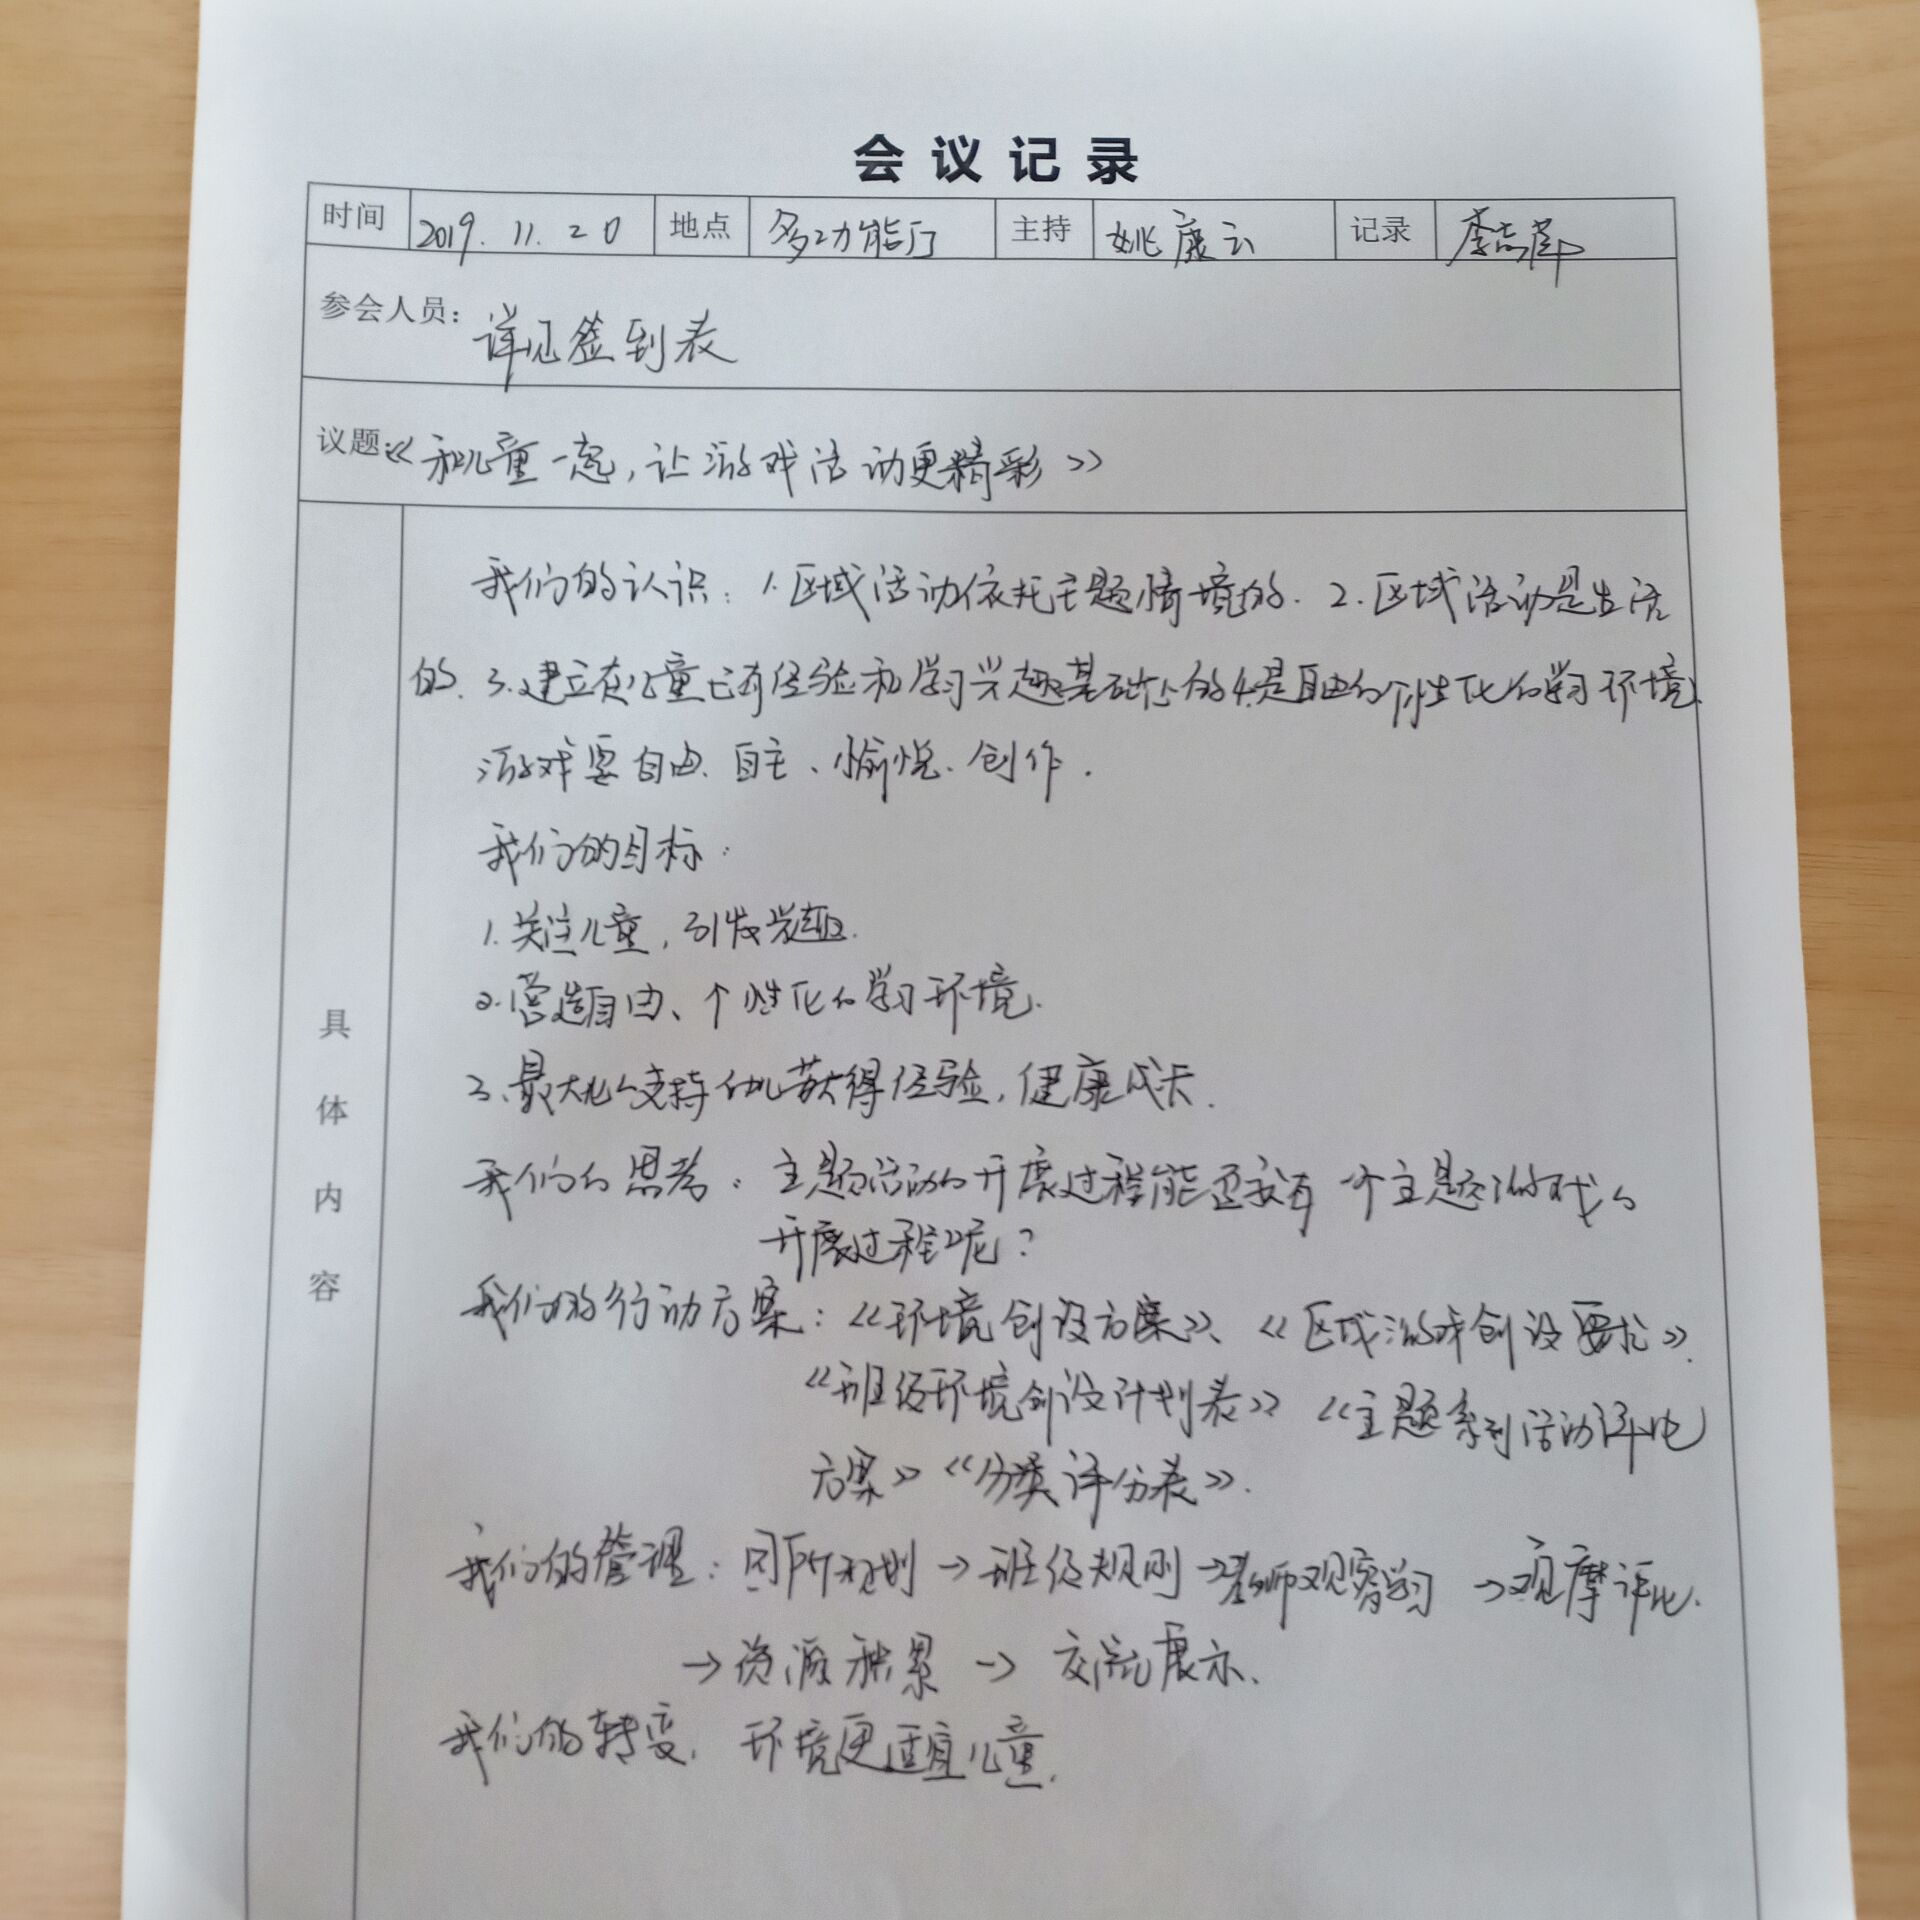 会议记录
时间 2019.11.20 地点 多功能厅 主持 姚康云 记录 李志萍
参会人员：详见签到表
议题：《和儿童一起，让游戏活动更精彩》
具体内容
我们的认识：1.区域活动依托主题情境的. 2.区域活动是生活
的. 3.建立在儿童已有经验和学习兴趣基础上的4.是自由的个性化的学习环境.
游戏要自由、自主、愉悦、创作.
我们的目标：
1.关注儿童，引发兴趣.
2.营造自由、个性化的学习环境.
3.最大化的支持幼儿获得经验，健康成长.
我们的思考：主题活动的开展过程能否我有一个主题游戏的
开展过程呢？
我们的行动方案：《环境创设方案》、《区域游戏创设要求》.
《班级环境创设计划表》《主题系列活动评比
方案》《分类评分表》.
我们的管理：园所规划→班级规则→教师观察学习→观摩评比.
→资源积累→交流展示.
我们的转变，环境更适宜儿童.